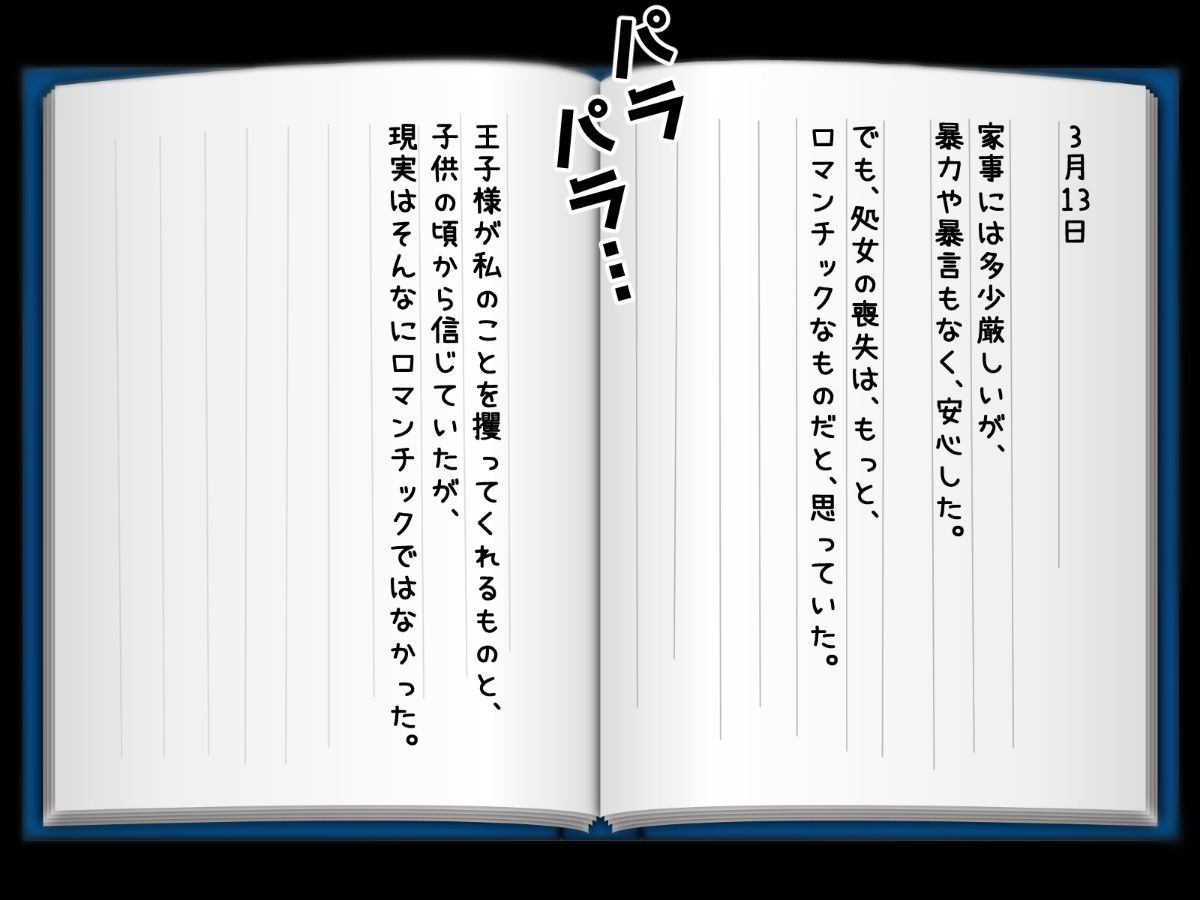 パラ
パラ…
3月13日
家事には多少厳しいが、
暴力や暴言もなく、安心した。
でも、処女の喪失は、もっと、
ロマンチックなものだと、思っていた。
王子様が私のことを攫ってくれるものと、
子供の頃から信じていたが、
現実はそんなにロマンチックではなかった。